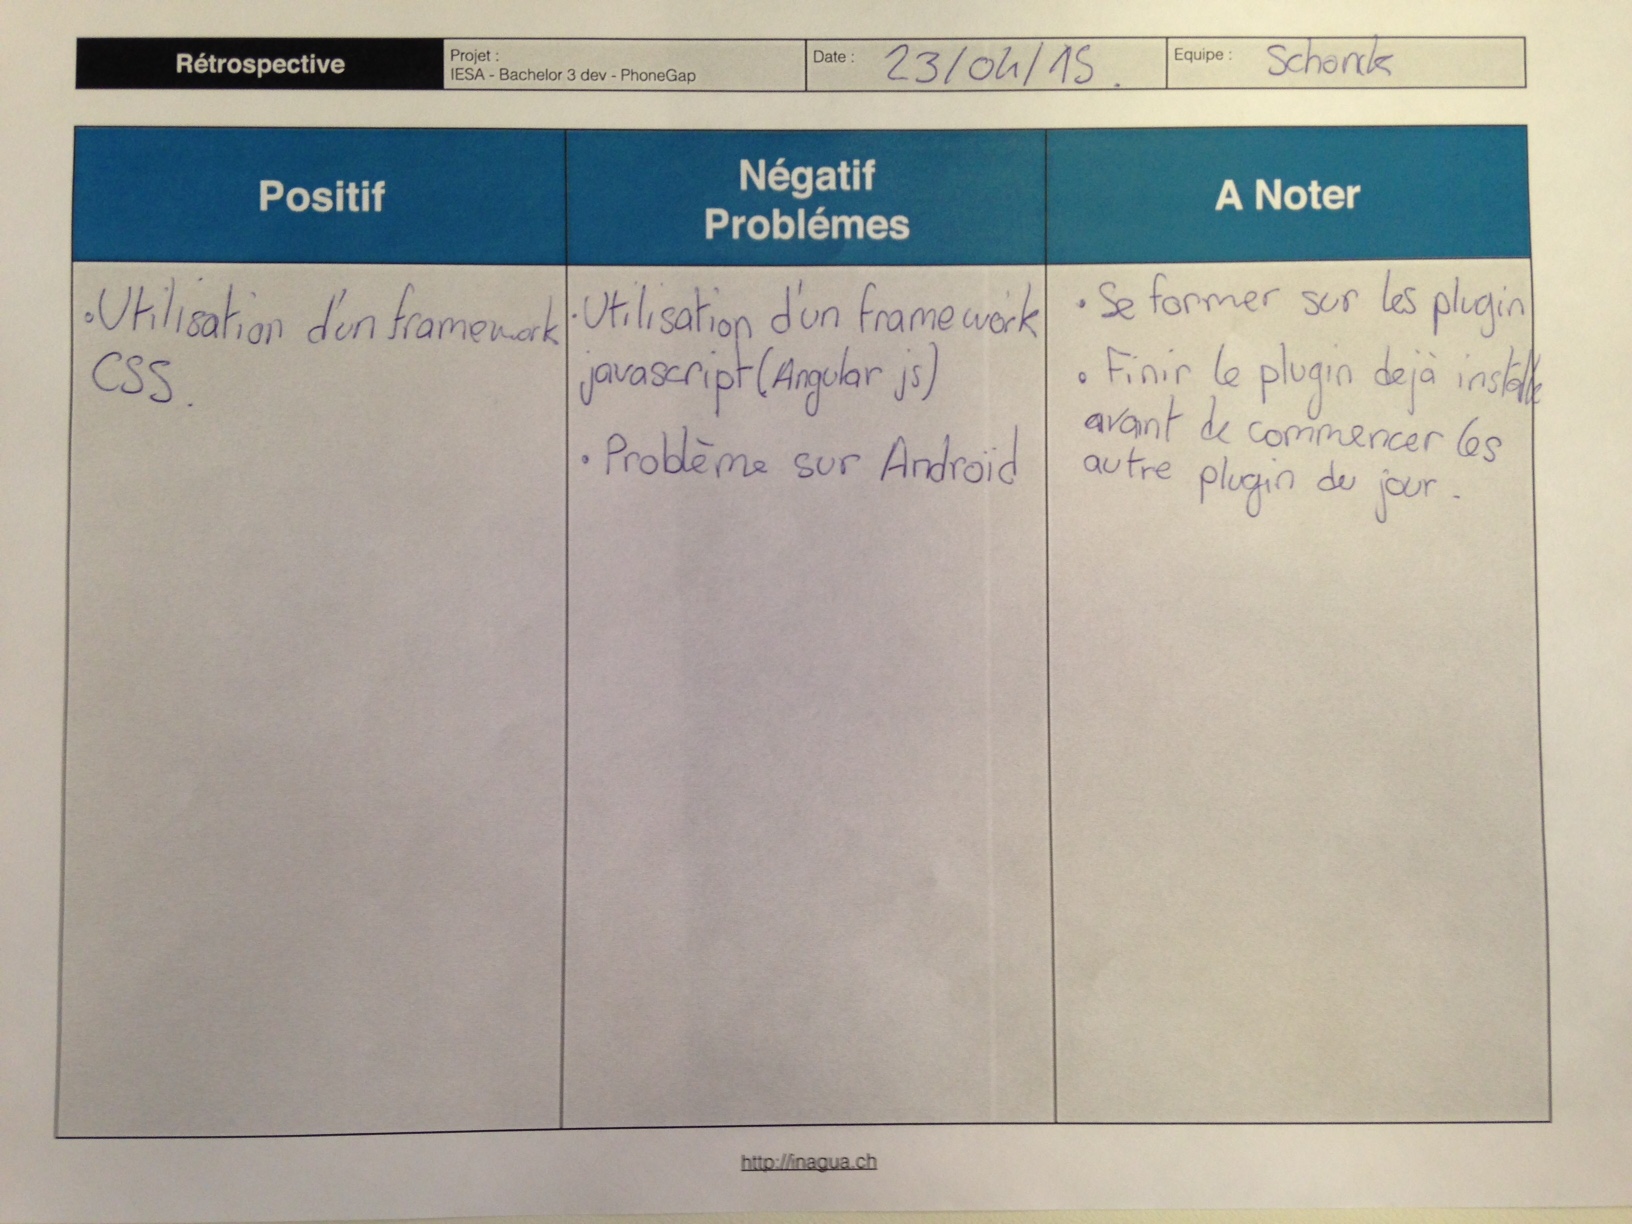 Rétrospective
Projet :
IESA - Bachelor 3 dev - PhoneGap
Date : 23/04/15.
Equipe : Schonk
Positif
• Utilisation d'un framework
CSS.
Négatif
Problémes
• Utilisation d'un framework
javascript (Angular js)
• Problème sur Android
A Noter
• Se former sur les plugin
• Finir le plugin dejà installé
avant de commencer les
autre plugin du jour.
http://inaqua.ch